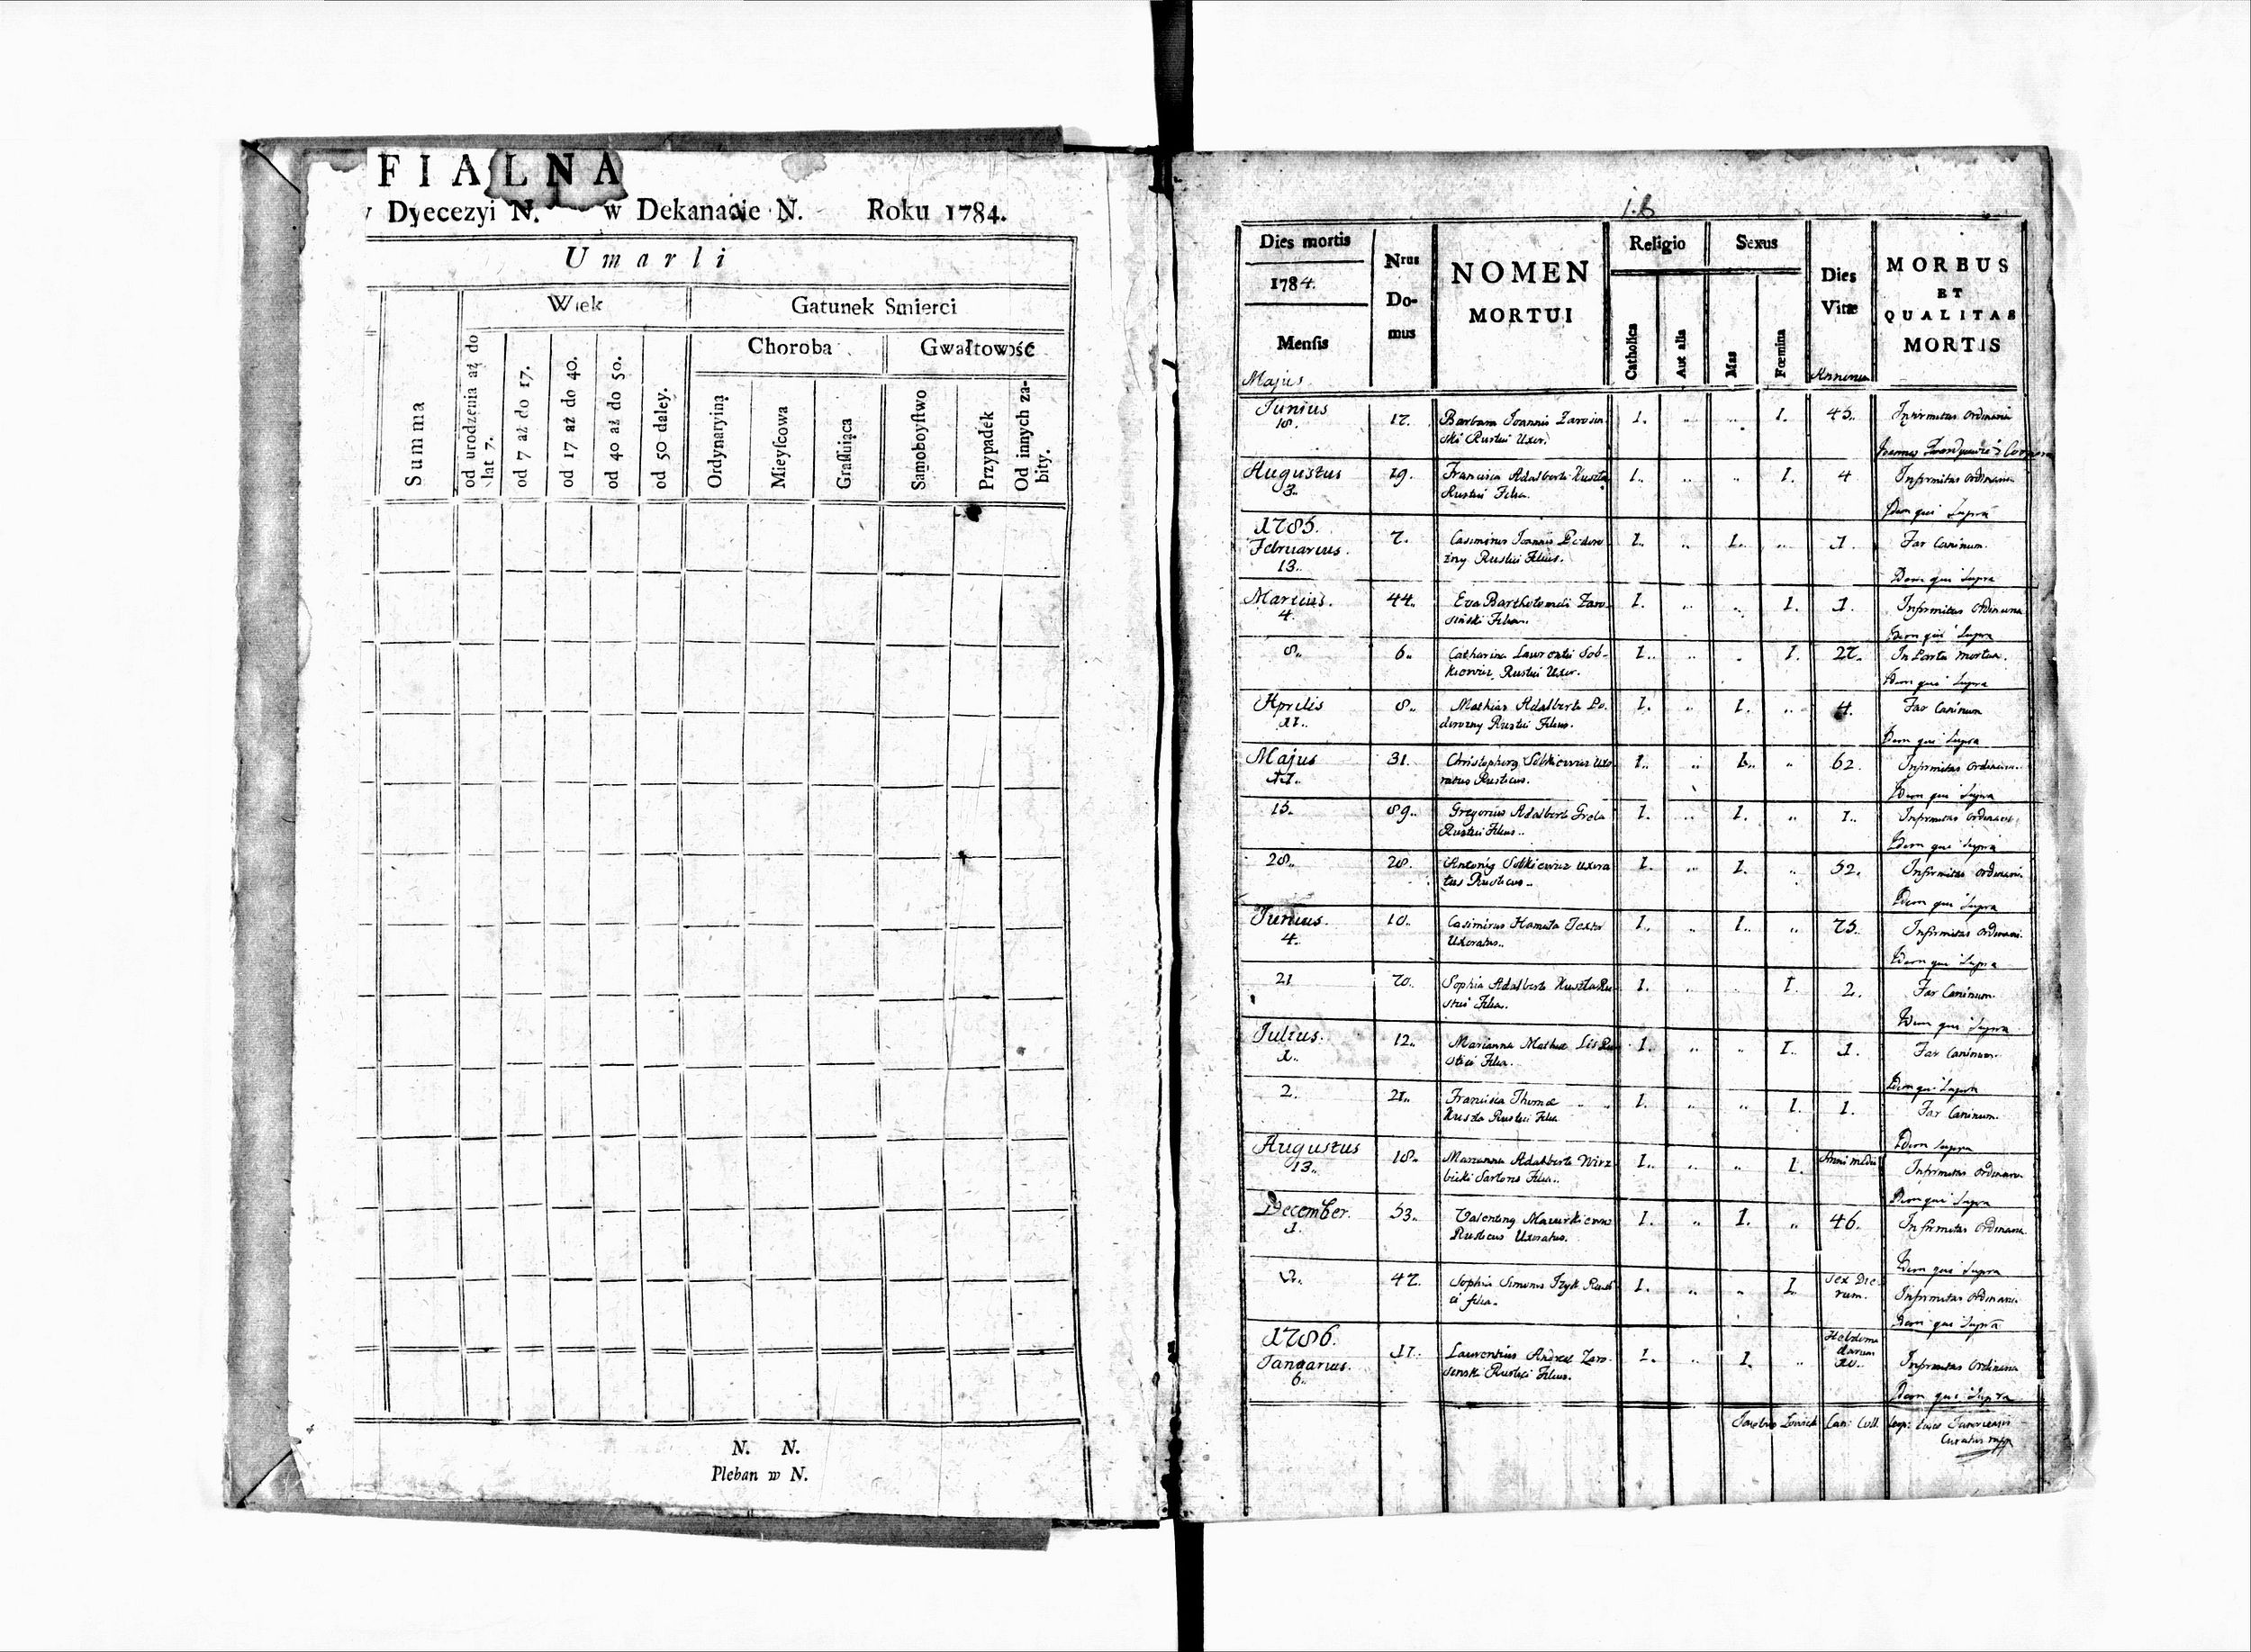 FIALNA
Dyecezyi N. w Dekanacie N. Roku 1784.
Umarli
Summa
Wiek
Gatunek Smierci
od urodzenia aż do lat 7.
od 7 aż do 17.
od 17 aż do 40.
od 40 aż do 50.
od 50 daley.
Choroba
Gwałtowość
Ordynaryiną
Mieyscowa
Graſſuiąca
Samoboyſtwo
Przypadek
Od innych zabity.
N. N.
Pleban w N.
Dies mortis
1784.
Menſis
Majus
Nrus Domus
NOMEN
MORTUI
Religio
Catholica
Aut alia
Sexus
Mas
Fœmina
Dies
Vitæ
Annorum
MORBUS
ET
QUALITAS
MORTIS
Junius 18. 17. Barbara Joannis Zarosin
ski Rustici Uxor. 1. .. .. 1. 45. Infirmitas Ordinaria
Augustus 3. 19. Francisca Adalberti Kuszta
Rustici Filia. 1. .. .. 1. 4 Infirmitas Ordinaria
Idem qui Supra
1785.
Februarius. 13. 7. Casimirus Joannis Podwo
zny Rustici Filius. 1. .. 1. .. 1. Far Caninum.
Idem qui Supra
Martius. 4. 44. Eva Bartholomei Zaro
siński Filia. 1. .. .. 1. 1. Infirmitas Ordinaria
Idem qui Supra
8. 6. Catharina Laurentii Sob-
kiewicz, Rustici Uxor. 1. .. . 1. 27. In Partu mortua.
Idem qui Supra
Aprilis 11. 8. Mathias Adalberti Po
drozny Rustici Filius. 1. .. 1. .. 4. Far Caninum
Idem qui Supra
Majus 11. 31. Christophorus Sobkiewicz Uxo
ratus Rusticus. 1. .. 1. .. 62. Infirmitas Ordinaria.
Idem qui Supra
15. 89. Gregorius Adalberti Grela
Rustici Filius. 1. .. 1. .. 1. Infirmitas Ordinaria
Idem qui Supra
28. 28. Antonius Sobkiewicz Uxora
tus Rusticus. 1. .. 1. .. 52. Infirmitas Ordinaria
Idem qui Supra
Junius. 4. 10. Casimirus Hamata Textor
Uxoratus. 1. .. 1. .. 75. Infirmitas Ordinaria
Idem qui Supra
21 70. Sophia Adalberti Kuszta Ru
stici Filia. 1. .. .. 1. 2. Far Caninum.
Idem qui Supra
Julius. 1. 12. Marianna Mathiæ Lis Ru
stici Filia. 1. .. .. 1. 1. Far Caninum.
Idem qui Supra
2. 21. Francisca Thomæ
Kuszta Rustici Filia 1. .. .. 1. 1. Far Caninum.
Idem Supra
Augustus 13. 18. Marianna Adalberti Wirz
bicki Sartoris Filia. 1. .. .. 1. Anni medii Infirmitas Ordinaria
Idem qui Supra
December. 1. 53. Valentinus Mazurkiewicz
Rusticus Uxoratus. 1. .. 1. .. 46. Infirmitas Ordinaria
Idem qui Supra
47. Sophia Simonis Rusti
ci filia. 1. .. .. 1. Sex Die
rum. Infirmitas Ordinaria.
Idem qui Supra
1786.
Januarius. 6. 11. Laurentius Andreæ Zaro
sinski Rustici Filius. 1. .. 1. .. Hebdoma
darum Infirmitas Ordinaria
Idem qui Supra